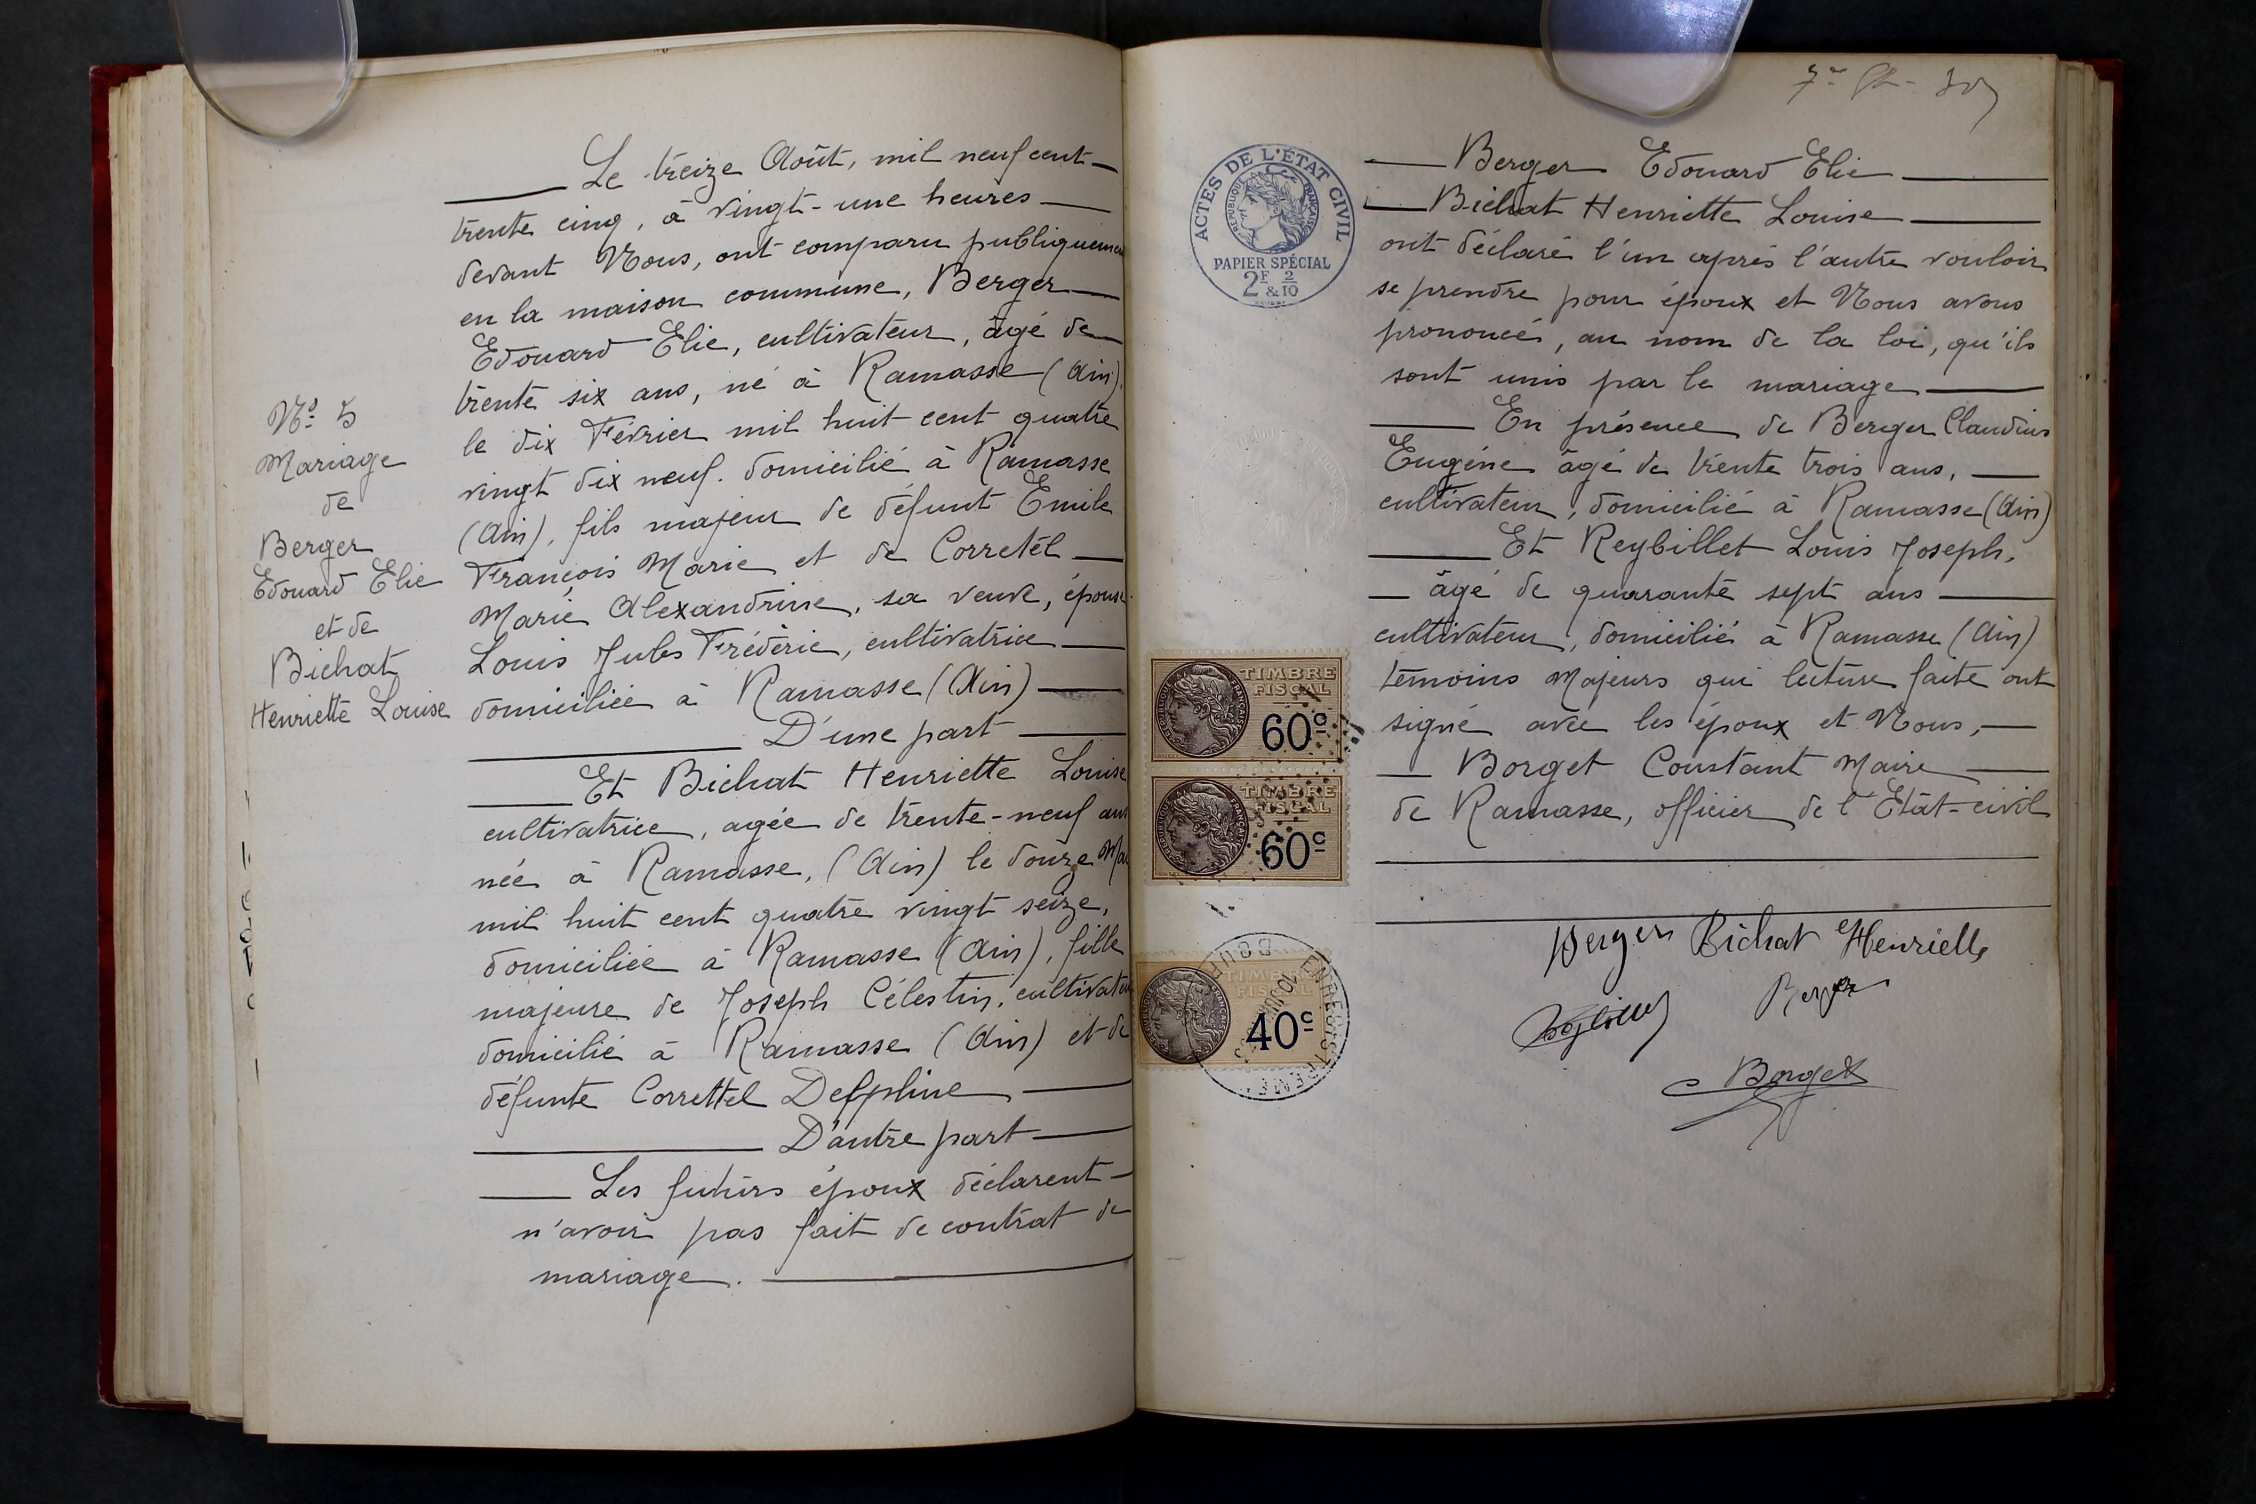 Nº 5
Mariage
de
Berger
Edouard Elie
et de
Bichat
Henriette Louise
Le treize Août, mil neuf cent
trente cinq, à vingt-une heures
devant Nous, ont comparu publiquement
en la maison commune, Berger
Edouard Elie, cultivateur, âgé de
trente six ans, né à Ramasse (Ain).
le dix Février mil huit cent quatre
vingt dix neuf. domicilié à Ramasse
(Ain), fils majeur de défunt Emile
François Marie et de Corretél
Marie Alexandrine, sa veuve, épouse
Louis Jules Frédéric, cultivatrice
domiciliée à Ramasse (Ain)
D'une part
Et Bichat Henriette Louise
cultivatrice, agée de trente-neuf ans
née à Ramasse, (Ain) le douze
mil huit cent quatre vingt seize,
domiciliée à Ramasse (Ain), fille
majeure de Joseph Célestin, cultivateur
domicilié à Ramasse (Ain) et de
défunte Correttel Delphine
D'autre part
Les futurs époux déclarent
n'avoir pas fait de contrat de
mariage.
ACTES DE L'ÉTAT CIVIL
RÉPUBLIQUE FRANÇAISE
PAPIER SPÉCIAL
2F & 2/10
Berger Edouard Elie
Bichat Henriette Louise
ont déclaré l'un après l'autre vouloir
se prendre pour époux et Nous avons
prononcé, au nom de la loi, qu'ils
sont unis par le mariage
En présence de Berger Claudius
Eugéne âgé de trente trois ans,
cultivateur, domicilié à Ramasse (Ain)
Et Reybillet Louis Joseph,
âgé de quarante sept ans
cultivateur, domicilié à Ramasse (Ain)
témoins Majeurs qui lecture faite ont
signé avec les époux et Nous,
Borget Constant Maire
de Ramasse, officier de l'Etât-civil
TIMBRE
FISCAL
60c
TIMBRE
FISCAL
60c
TIMBRE
FISCAL
40c
Berger Bichat Henriette
Berger
Borget